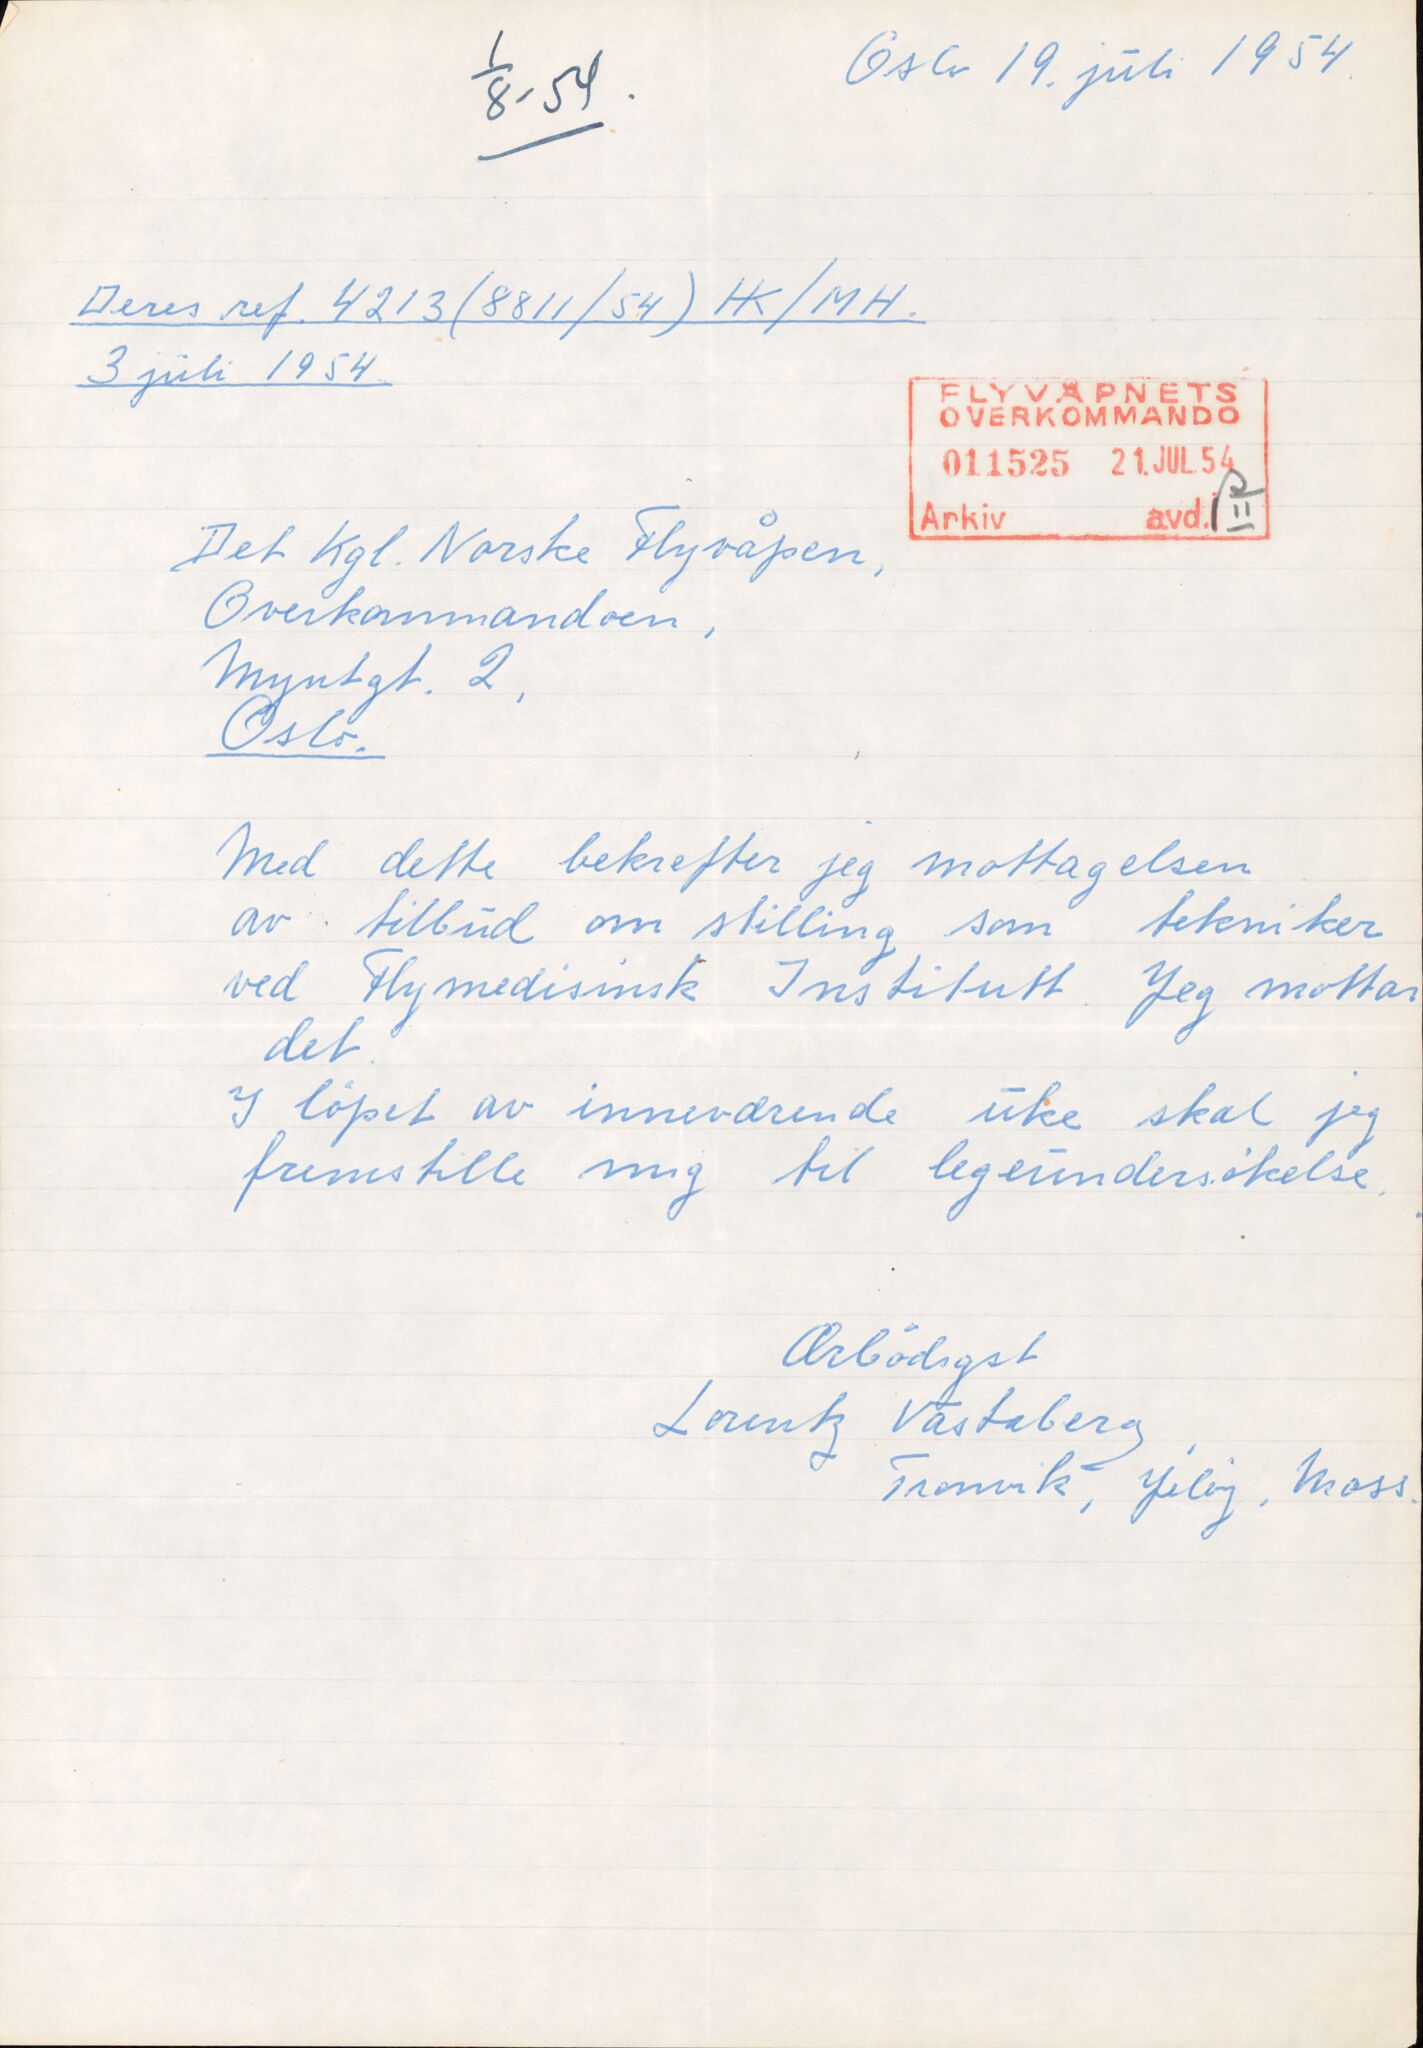 1/8-54.
Oslo 19. juli 1954.
Deres ref. 4213(8811/54) HK/MH.
3 juli 1954.
FLYVÅPNETS
OVERKOMMANDO
011525 21.JUL.54
Arkiv avd.
Det Kgl. Norske Flyvåpen,
Overkommandoen,
Myntgt. 2,
Oslo.
Med dette bekrefter jeg mottagelsen
av tilbud om stilling som tekniker
ved Flymedisinsk Institutt. Jeg mottar
det.
I löpet av inneværende uke skal jeg
fremstille mig til legeundersökelse.
Ærbödigst
Lorentz Våstaberg,
Tronvik, Jelöy, Moss.